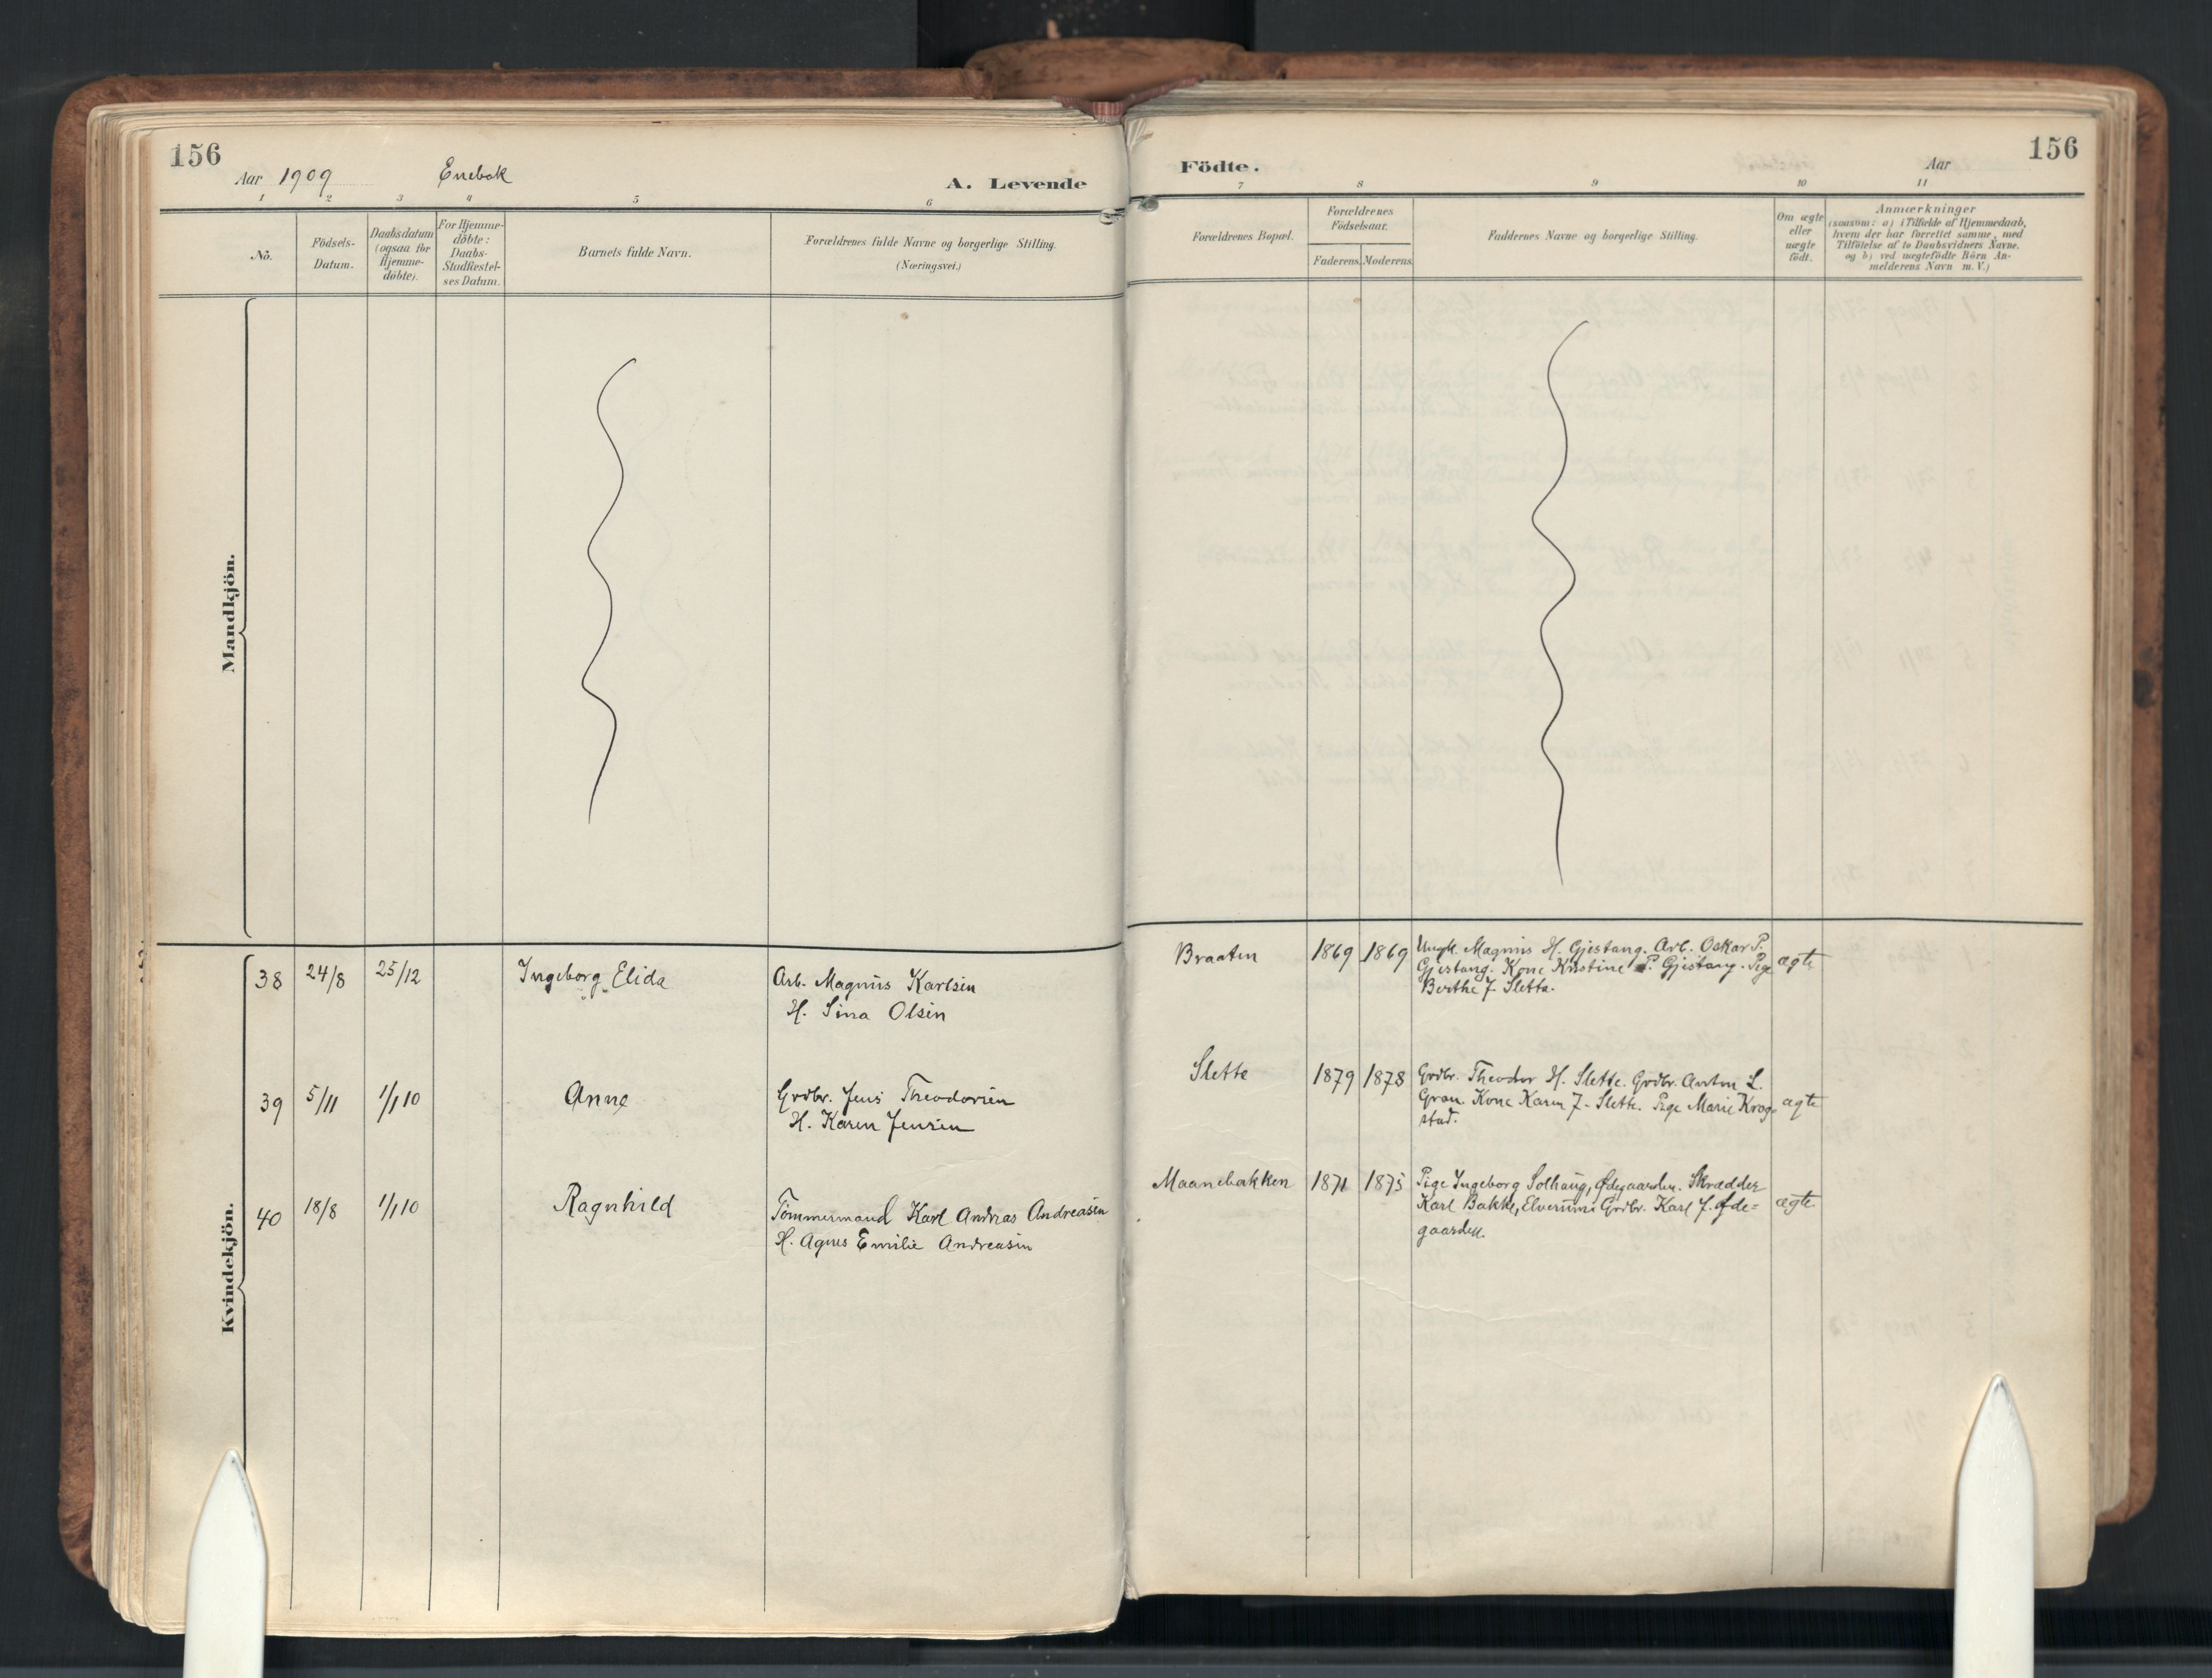 156
Aar 1909 Enebak
A. Levende
1 2 3 4 5 6
No.
Födsels-
Datum.
Daabsdatum
(ogsaa for
Hjemme-
döbte).
For Hjemme-
döbte:
Daabs-
Stadfæstel-
ses Datum.
Barnets fulde Navn.
Forældrenes fulde Navne og borgerlige Stilling.
(Næringsvei.)
Mandkjön.
Kvindekjön.
38 24/8 25/12 Ingeborg Elida Arb. Magnus Karlsen
H. Sina Olsen
39 5/11 1/1 10 Anne Grdbr. Jens Theodorsen
H. Karen Jensen
40 18/8 1/1 10 Ragnhild Tömmermand Karl Andreas Andreasen
H. Agnes Emilie Andreasen
Födte.
Aar
156
7 8 9 10 11
Forældrenes Bopæl.
Forældrenes
Födselsaar.
Faderens. Moderens.
Faddernes Navne og borgerlige Stilling.
Om ægte
eller
uægte
födt.
Anmærkninger
(saasom: a) i Tilfælde af Hjemmedaab,
hvem der har forrettet samme, med
Tilföielse af to Daabsvidners Navne.
og b) ved uægtefödte Börn An-
melderens Navn m. V.)
Braaten 1869 1869 Ungk. Magnus H. Gjestang. Arb. Oskar P.
Gjestang. Kone Kristine P. Gjestang. Pige
Berthe J. Sletta.
ægte
Slette 1879 1878 Grdbr. Theodor H. Slette. Grdbr. Anton L.
Gran. Kone Karen J. Slette. Pige Marie Krog-
stad.
ægte
Maanebakken 1871 1875 Pige Ingeborg Solhaug, Ødegaarden. Skrædder
Karl Bakke, Elverum. Grdbr. Karl J. Øde-
gaarden.
ægte